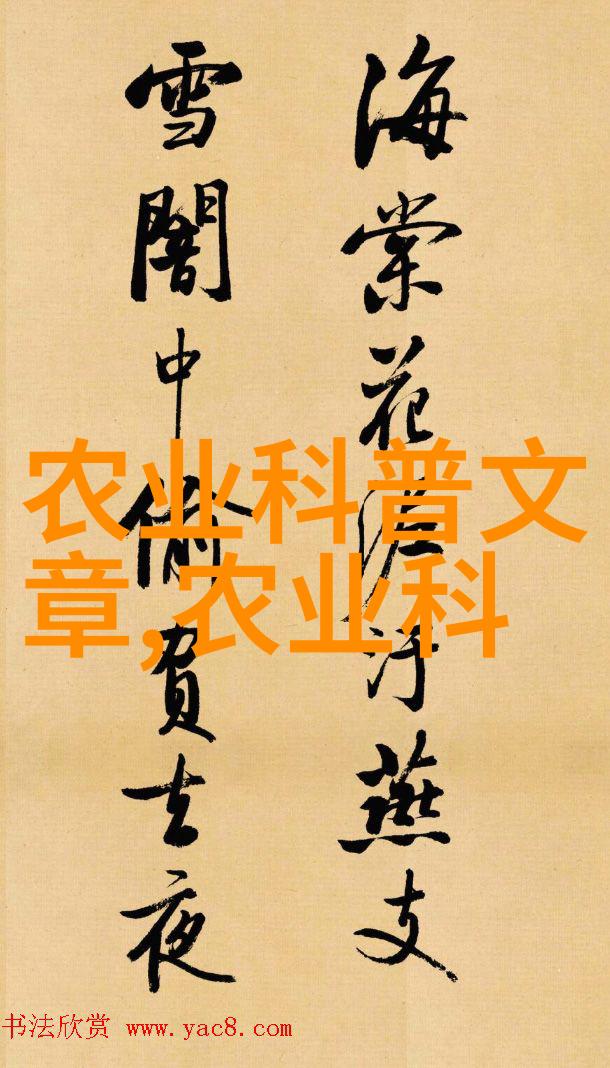 海棠花泥汙燕支
雪闇中偷負去夜
农业科普文
章,农业科
书法欣赏 www.yac8.com